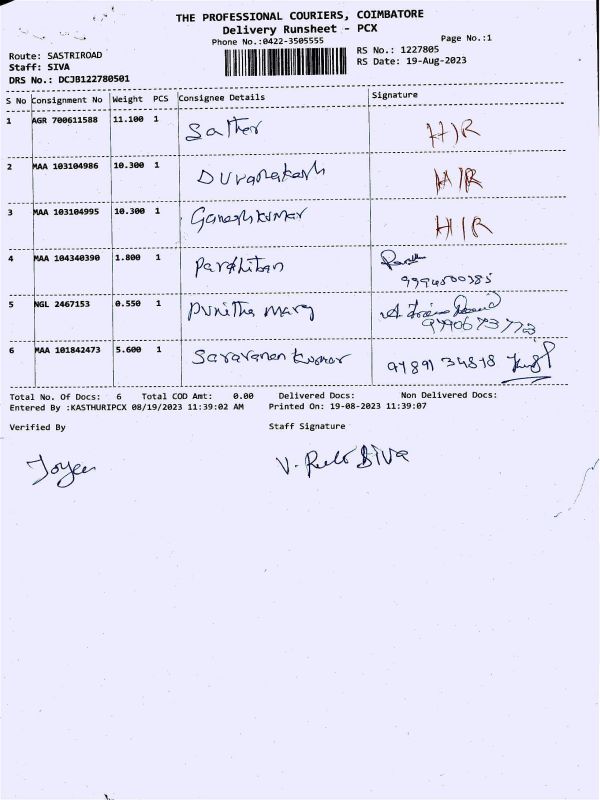 THE PROFESSIONAL COURIERS, COIMBATORE
Delivery Runsheet - PCX
Phone No.:0422-3505555
Page No.:1
Route: SASTRIROAD
RS No.: 1227805
Staff: SIVA
RS Date: 19-Aug-2023
DRS No.: DCJB122780501
S No Consignment No Weight PCS Consignee Details Signature
1 AGR 700611588 11.100 1 H/R
2 MAA 103104986 10.300 1 H/R
3 MAA 103104995 10.300 1 Ganeshkumar H/R
4 MAA 104340390 1.800 1 Parthiban
9994500385
5 NGL 2467153 0.550 1 Punitha mary
9790673773
6 MAA 101842473 5.600 1 Saravanan kumar 97891 34818
Total No. Of Docs: 6 Total COD Amt: 0.00 Delivered Docs: Non Delivered Docs:
Entered By :KASTHURIPCX 08/19/2023 11:39:02 AM Printed On: 19-08-2023 11:39:07
Verified By Staff Signature
V. Siva